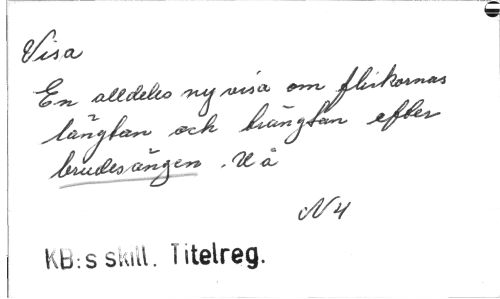 Visa
En alldeles ny visa om flickornas
längtan och trängtan efter
brudesängen. U å
N 4
KB:s skill. Titelreg.